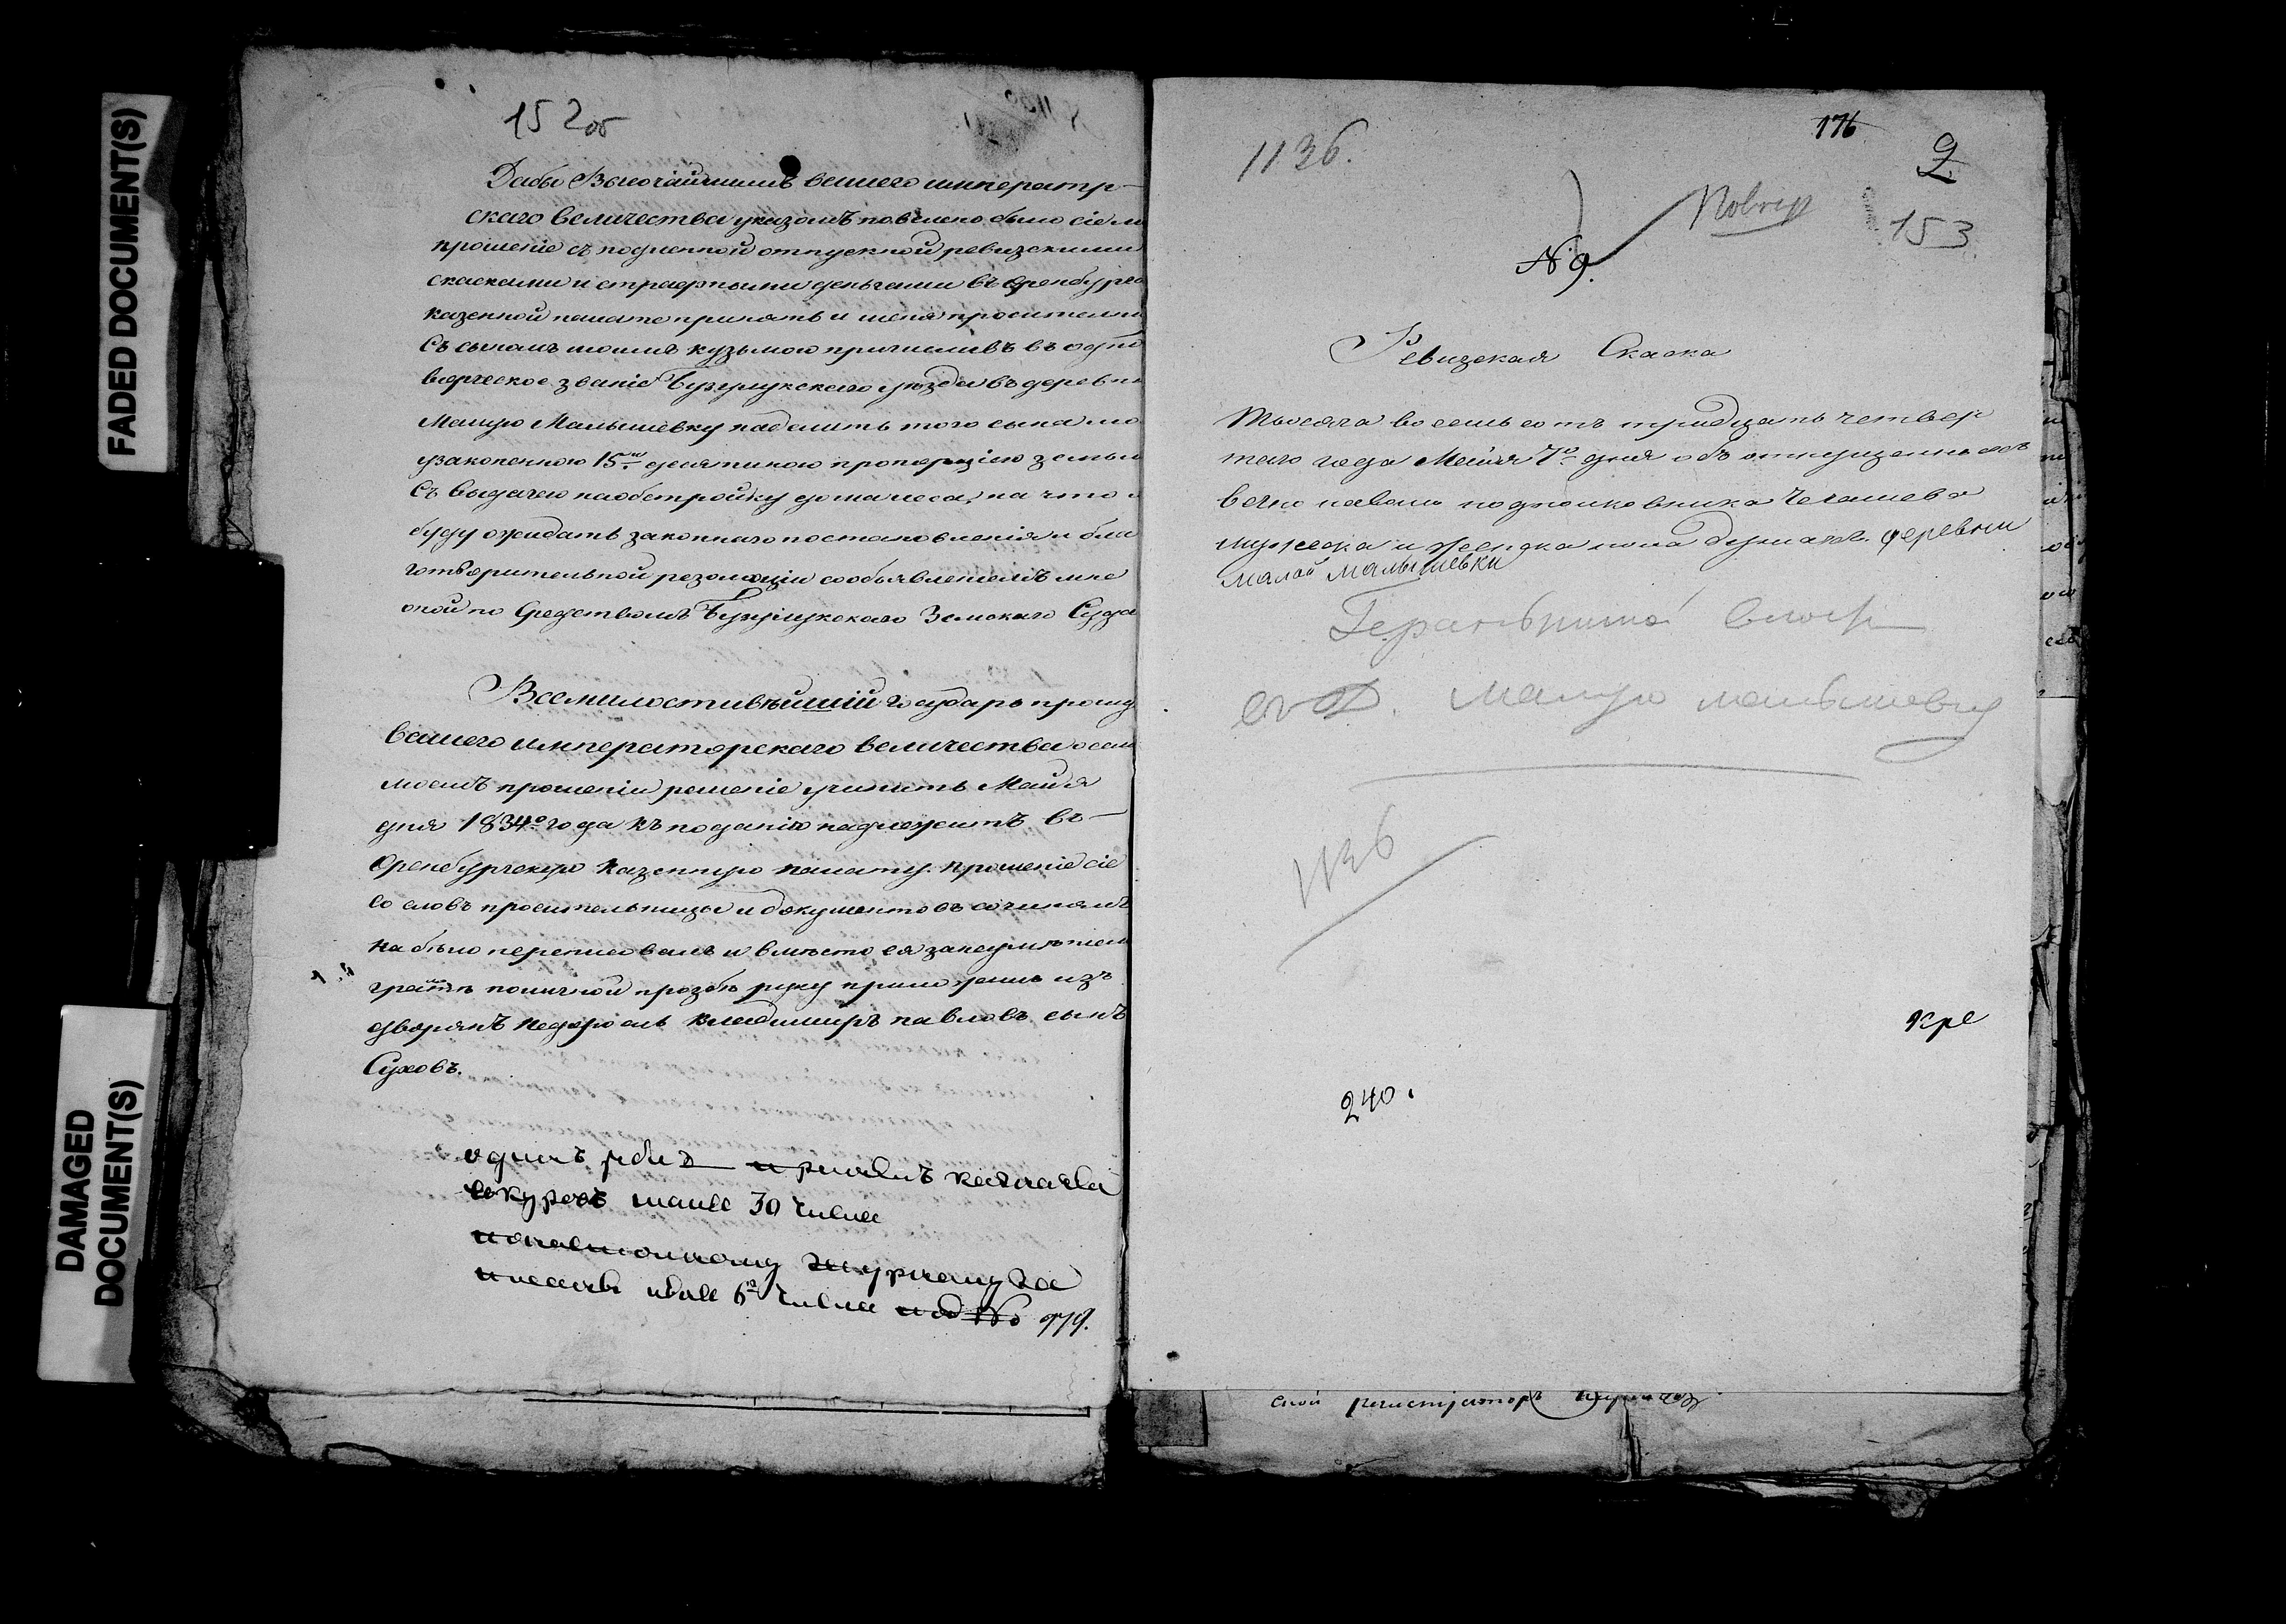 FADED DOCUMENT(S)
DAMAGED
DOCUMENT(S)
152об
Дабы Высочайшимъ вашего императр-
скаго величества указомъ повелено было сіе м
прошеніе съ подленной отпускной ревизскими
сказками и страфными деньгами въ Оренбургс
казенной палате принять и меня просителн
Съ сыномъ моимъ кузьмою причисливъ въ одно
ворческое званіе Бузулукскаго уезда въ деревн
Малую Малышевку наделить того сына мо
узаконенною 15ти десятиною пропорціею земли
Съ выдачею на обстройку дома леса, на что и
буду ожидать законнаго постановленія и бла
готворительной резолюціи со объявленіемъ мне
оной по Средствомъ Бузулукскаго Земскаго Суда
Всемилостивѣйшій Государь прошу
вашего императорскаго величества о сем
моемъ прошеніи решеніе учинить Маія
дня 1834го года Къ поданію надлежитъ въ-
Оренбургскую Казенную палату. Прошеніе сіе
Со словъ просительницы и документовъ сочинялъ
на бѣло переписовалъ и вместо ея за неумѣніем
грамотѣ по личной прозбѣ руку приложилъ изъ
дворянъ недоросль Владимиръ павловъ сынъ
Суховъ.
одинъ рубл
маія 30 числа
журналу за
6го числа под № 979.
1136.
176
2
153
№ 9.
Ревизская Сказка
Тысяча восемь сотъ тридцать четвер
таго года Маія 7го дня объ отпущенныхъ
вечно на волю подполковника Чемашева
мужеска и женска пола душахъ. деревни
малой малышевки
Малую малышевку
1136
кре
240.
ской регистраторъ